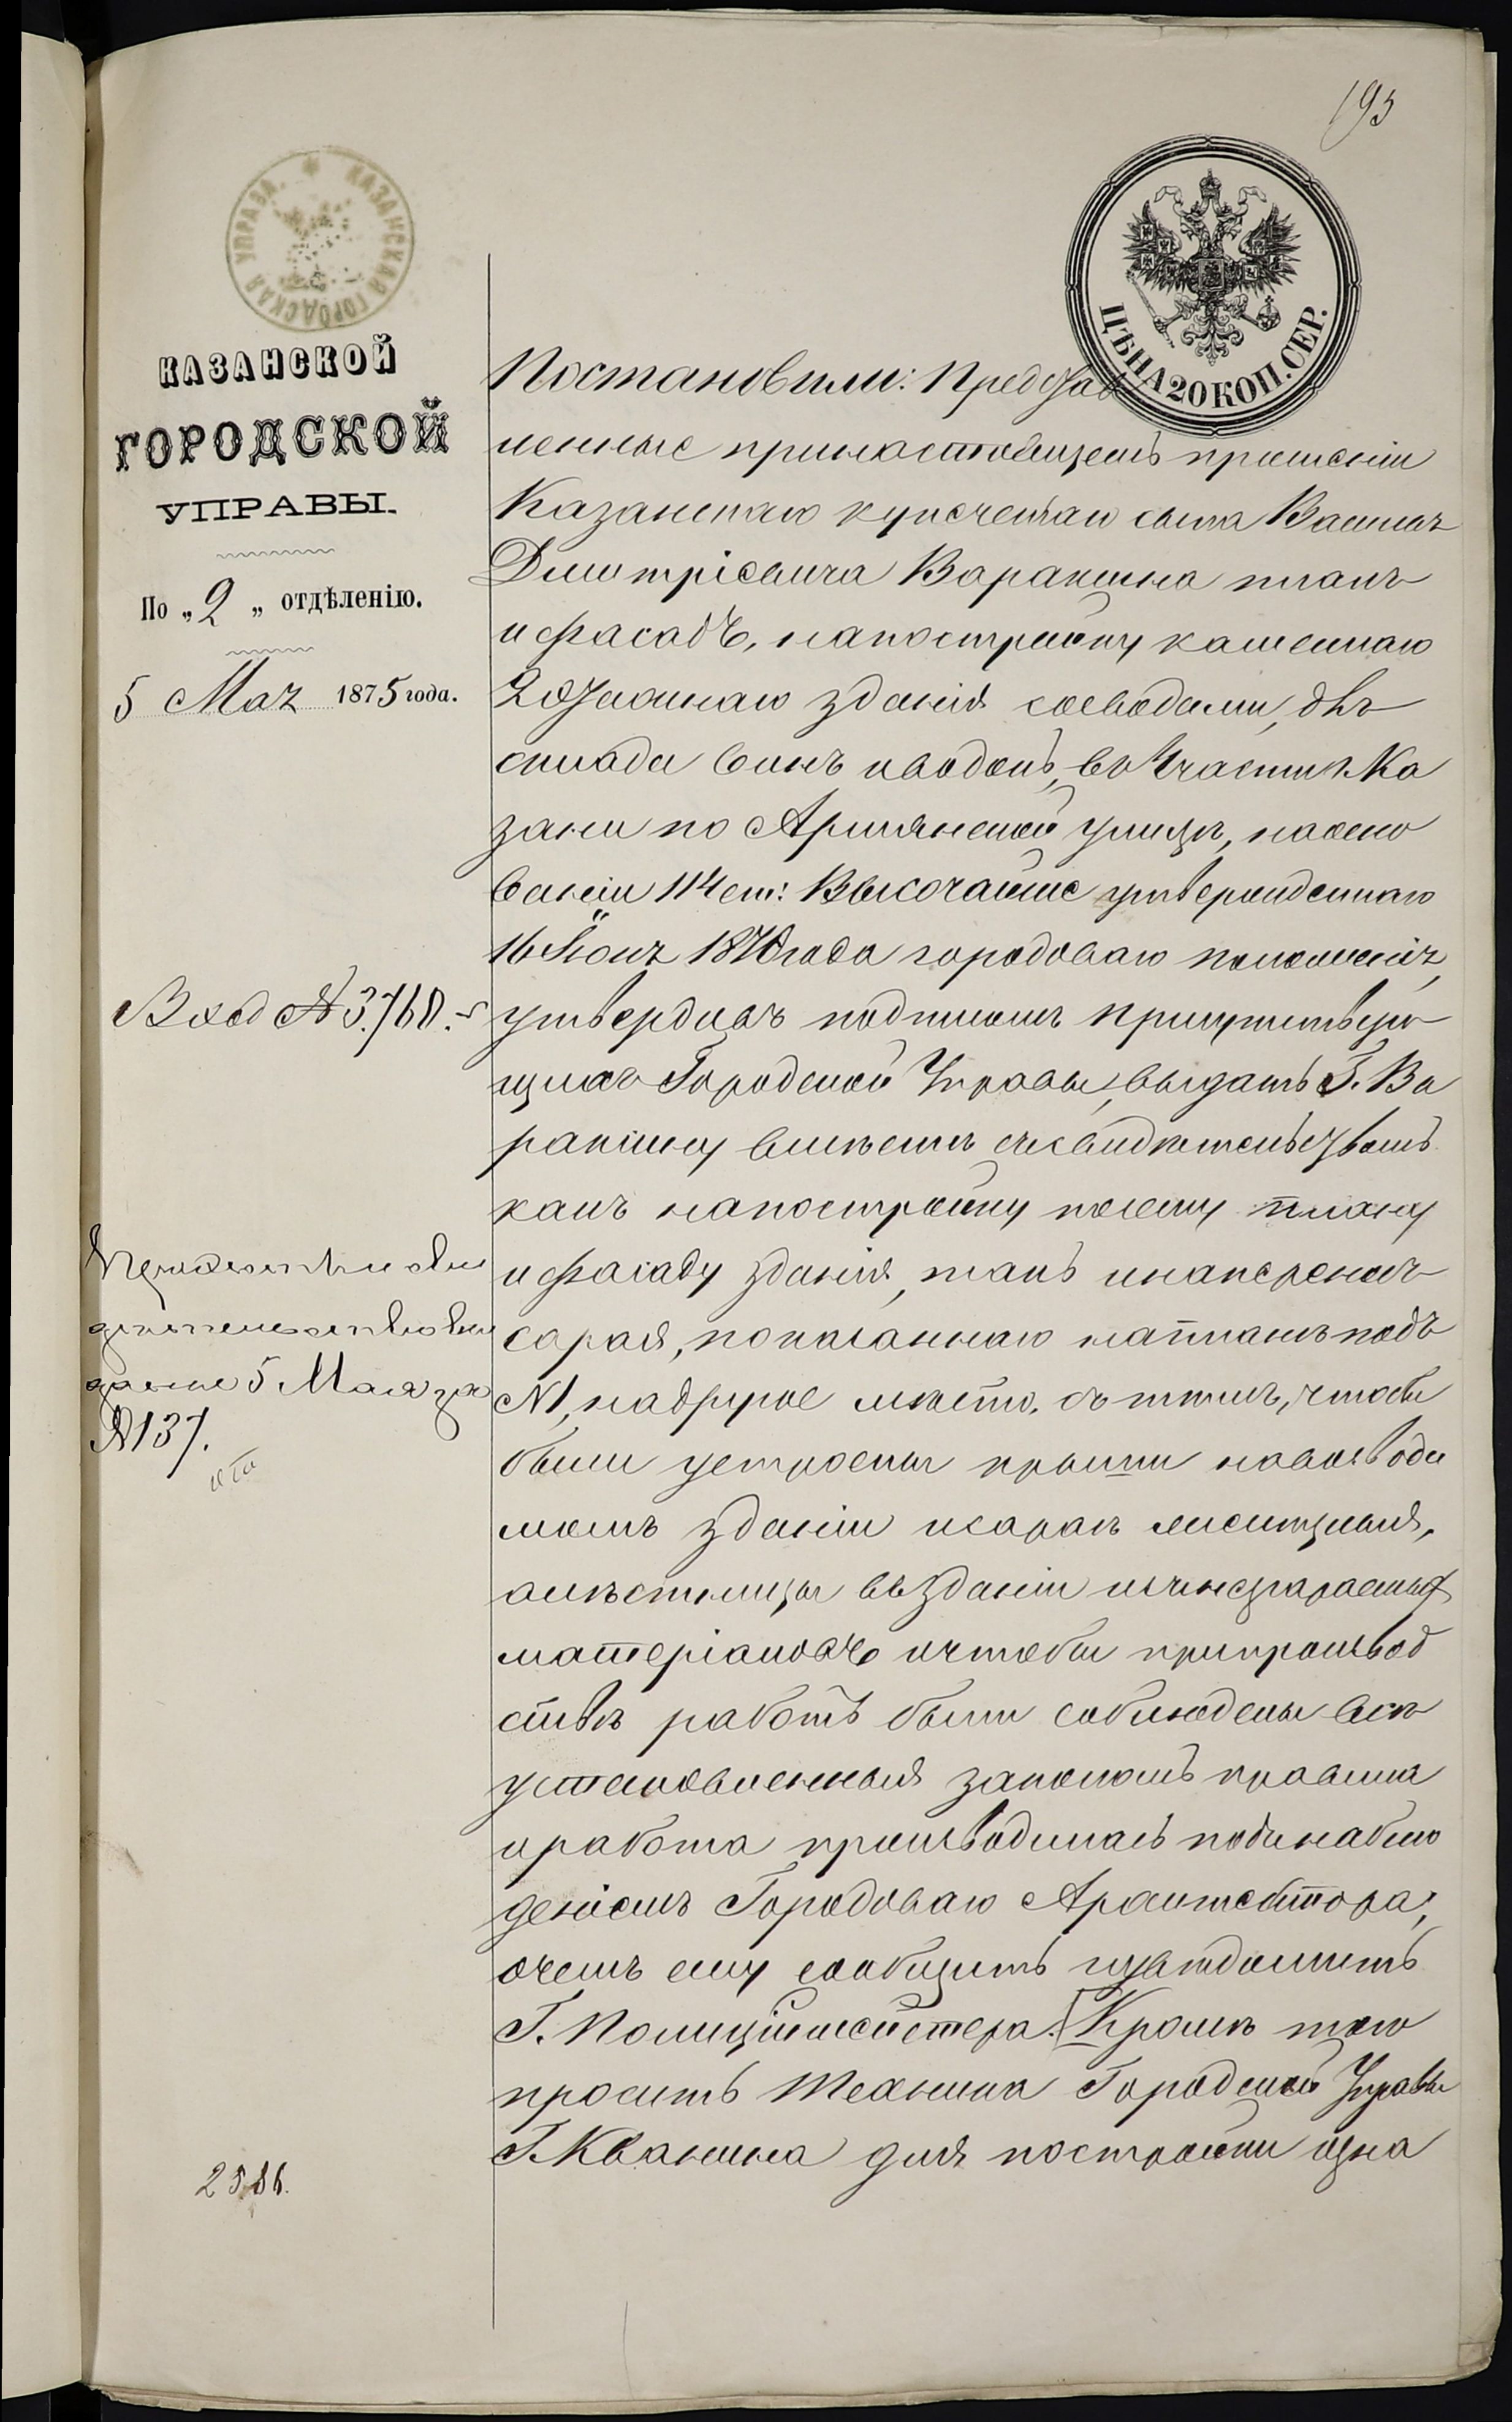 193
КАЗАНСКАЯ ГОРОДСКАЯ УПРАВА.
ЦѢНА 20 КОП. СЕР.
КАЗАНСКОЙ
ГОРОДСКОЙ
УПРАВЫ.
По „2„ отдѣленію.
5 Мая 1875 года.
Вход № 3768.
5 Мая за
№ 137.
2586.
Постановили: Представ
ленные при настоящемъ прошеніи
Казанскаго купеческаго сына Василія
Дмитріевича Варакина планъ
и фасадъ, на постройку каменнаго
2 этажнаго зданія со сводами, для
склада винъ и водокъ, во 2 части г. Ка
зани по Армянской улицѣ, на осно
ваніи 114 ст: Высочайше утвержденнаго
16 Іюня 1870 года городоваго положенія,
утвердивъ подписомъ присутствую
щихъ Городской Управы, выдать Г. Ва
ракину вмѣстѣ съ свидѣтельствомъ
какъ на постройку по сему плану
и фасаду зданія, такъ и на переносъ
сарая, показаннаго на планѣ подъ
№ 1, на другое мѣсто, съ тѣмъ, чтобы
были устроены крыши на возводи
момъ зданіи и сараѣ желѣзныя,
а лѣстницы въ зданіи изъ несгараемыхъ
матеріаловъ и чтобы при производ
ствѣ работъ были соблюдены всѣ
установленныя закономъ правила
и работа производилась подъ наблю
деніемъ Городоваго Архитектора,
о чемъ ему сообщить и увѣдомить
Г. Полиціймейстера. Кромѣ того
просить Техника Городской Управы
Г. Кванина для постройки